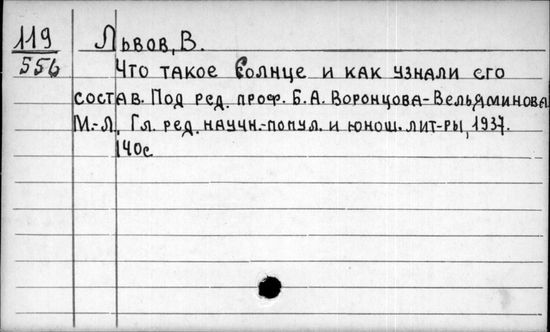 119
556
Львов, В.
Что такое Солнце и как узнали его
состав. Под ред. проф. Б.А. Воронцова-Вельяминова
М.-Л., Гл. ред. научн.-попул. и юнош. лит-ры, 1937.
140с